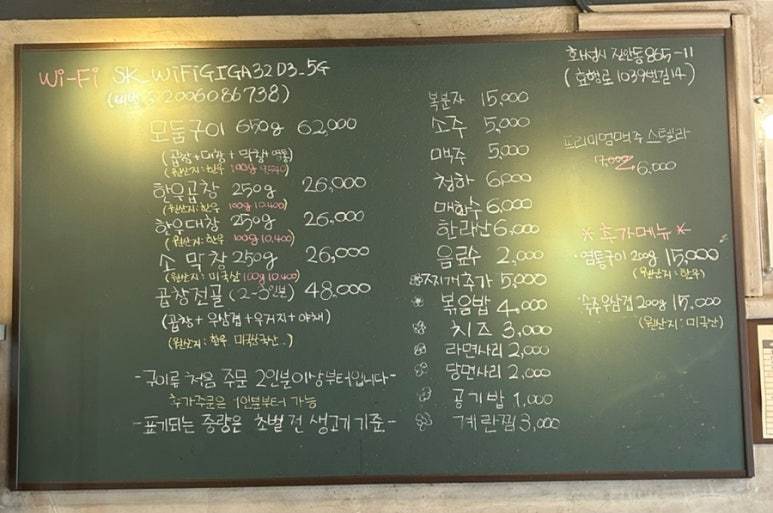 Wi-Fi SK_WiFiGIGA32D3_5G
(비번 : 2006086738)
모둠구이 650g 62,000
(곱창+대창+막창+염통)
(원산지:한우 100g 9,540)
한우곱창 250g 26,000
(원산지:한우 100g 10,400)
한우대창 250g 26,000
(원산지:한우 100g 10,400)
소 막창 250g 26,000
(원산지:미국산 100g 10,400)
곱창전골 (2~3인분) 48,000
(곱창+우삼겹+우거지+야채)
(원산지:한우 미국산)
-구이류 처음 주문 2인분이상부터입니다-
추가주문은 1인분부터 가능
-표기되는 중량은 초벌 전 생고기 기준-
복분자 15,000
소주 5,000
맥주 5,000
청하 6,000
매화수 6,000
한라산 6,000
음료수 2,000
찌개추가 5,000
볶음밥 4,000
치즈 3,000
라면사리 2,000
당면사리 2,000
공기밥 1,000
계란찜 3,000
화성시 진안동 865-11
(효행로 1039번길 14)
프리미엄맥주 스텔라
7,000 6,000
*추가메뉴*
·염통구이 200g 15,000
(원산지:한우)
·숙주우삼겹 200g 15,000
(원산지:미국산)